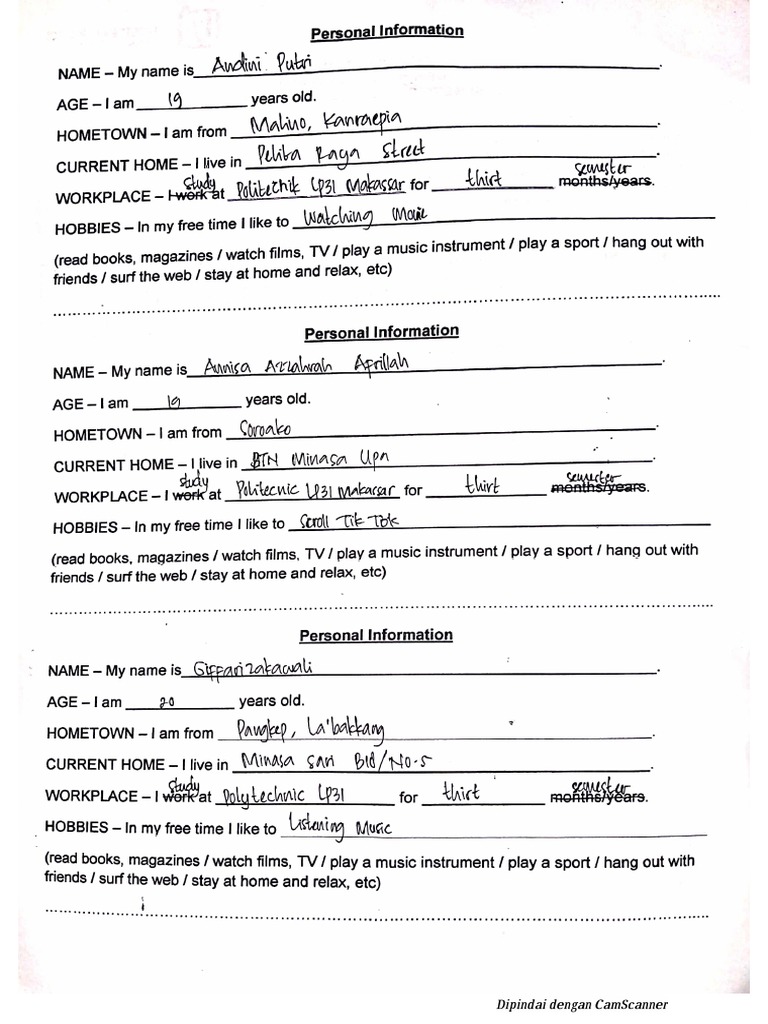 Personal Information
NAME – My name is Andini Putri.
AGE – I am 19 years old.
HOMETOWN – I am from Malino, Kanraepia
CURRENT HOME – I live in Pelita Raya Street.
WORKPLACE – I work study at Politechik LP3I Makassar for thirt months/years. semester
HOBBIES – In my free time I like to Watching Movie
(read books, magazines / watch films, TV / play a music instrument / play a sport / hang out with
friends / surf the web / stay at home and relax, etc)
Personal Information
NAME – My name is Annisa Azzahrah Afrillah.
AGE – I am 19 years old.
HOMETOWN – I am from Soroako.
CURRENT HOME – I live in BTN Minasa Upa.
WORKPLACE – I work study at Politecnic LP3I Makassar for thirt months/years. semester
HOBBIES – In my free time I like to Scroll Tik Tok
(read books, magazines / watch films, TV / play a music instrument / play a sport / hang out with
friends / surf the web / stay at home and relax, etc)
Personal Information
NAME – My name is Giffari zakawali.
AGE – I am 20 years old.
HOMETOWN – I am from Pangkep, La'bakkang.
CURRENT HOME – I live in Minasa Sari Bld/No.5.
WORKPLACE – I work study at Polytechnic LP3I for thirt months/years. semester
HOBBIES – In my free time I like to Listening Music
(read books, magazines / watch films, TV / play a music instrument / play a sport / hang out with
friends / surf the web / stay at home and relax, etc)
Dipindai dengan CamScanner